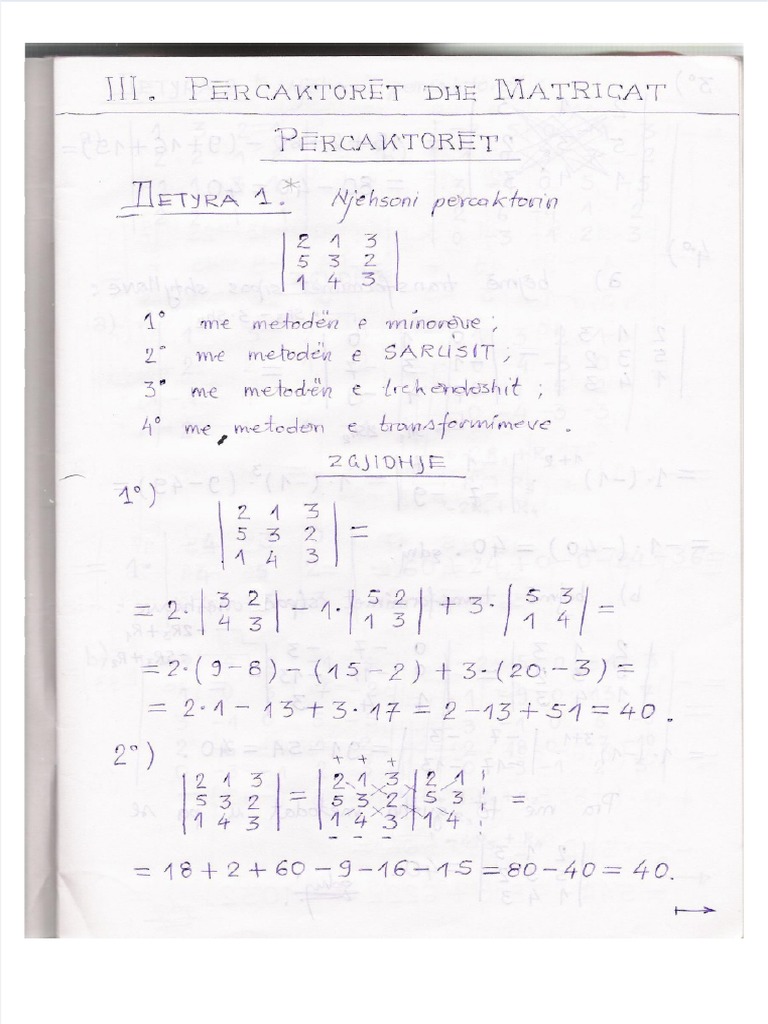 III. PËRCAKTORËT DHE MATRICAT
PËRCAKTORËT
DETYRA 1.* Njehsoni percaktorin
| 2 1 3 |
| 5 3 2 |
| 1 4 3 |
1° me metodën e minorëve;
2° me metodën e SARUSIT;
3° me metodën e
4° me metoden e transformimeve.
ZGJIDHJE
1°)
| 2 1 3 |
| 5 3 2 | =
| 1 4 3 |
= 2·| 3 2 | − 1·| 5 2 | + 3·| 5 3 | =
| 4 3 | | 1 3 | | 1 4 |
= 2·(9−8) − (15−2) + 3·(20−3) =
= 2·1 − 13 + 3·17 = 2−13+51 = 40.
2°)
+ + +
| 2 1 3 | | 2 1 3 | 2 1
| 5 3 2 | = | 5 3 2 | 5 3 =
| 1 4 3 | | 1 4 3 | 1 4
− − −
= 18+2+60−9−16−15 = 80−40 = 40.